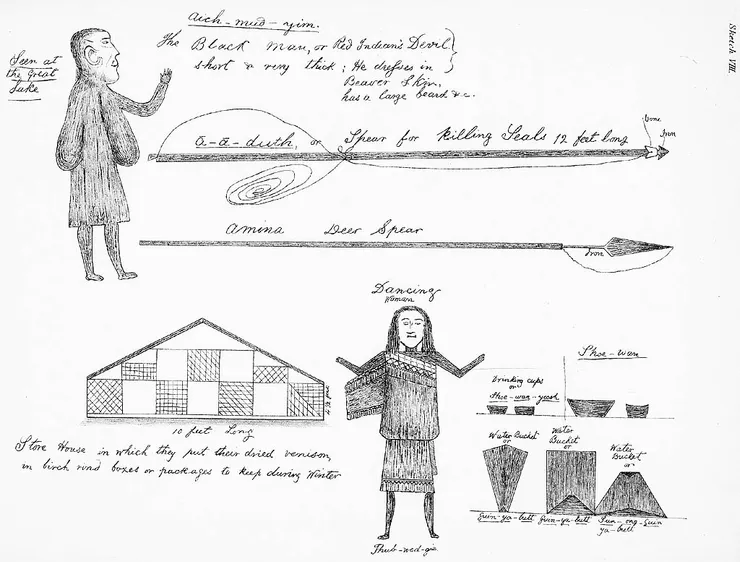 Sketch VIII.
Aich-mud-yim.
The Black Man, or Red Indian's Devil
short & very thick; He dresses in
Beaver Skin,
has a large beard &c.
Seen at
the Great
Lake
a-a-duth, or Spear for killing Seals 12 feet long
bone
Iron
Amina Deer Spear
Iron
Dancing
Woman
Thub-wed-gie
10 feet Long
Store House in which they put their dried venison,
in birch rind boxes or packages to keep during Winter
Shoe-wan
Drinking cups
or
Shoe-wan-yeesh
Water Bucket
or
Guin-ya-butt
Water
Bucket
or
Guin-ya-butt
Water
Bucket
or
Sun-ong-guin
ya-butt